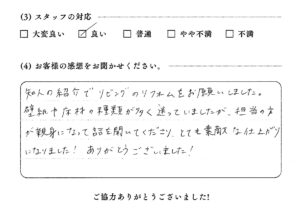 (3) スタッフの対応
□ 大変良い ☑ 良い □ 普通 □ やや不満 □ 不満
(4) お客様の感想をお聞かせください。
知人の紹介でリビングのリフォームをお願いしました。
壁紙や床材の種類が多く迷っていましたが、担当の方
が親身になって話を聞いてくださり、とても素敵な仕上がり
になりました! ありがとうございました!
ご協力ありがとうございました!